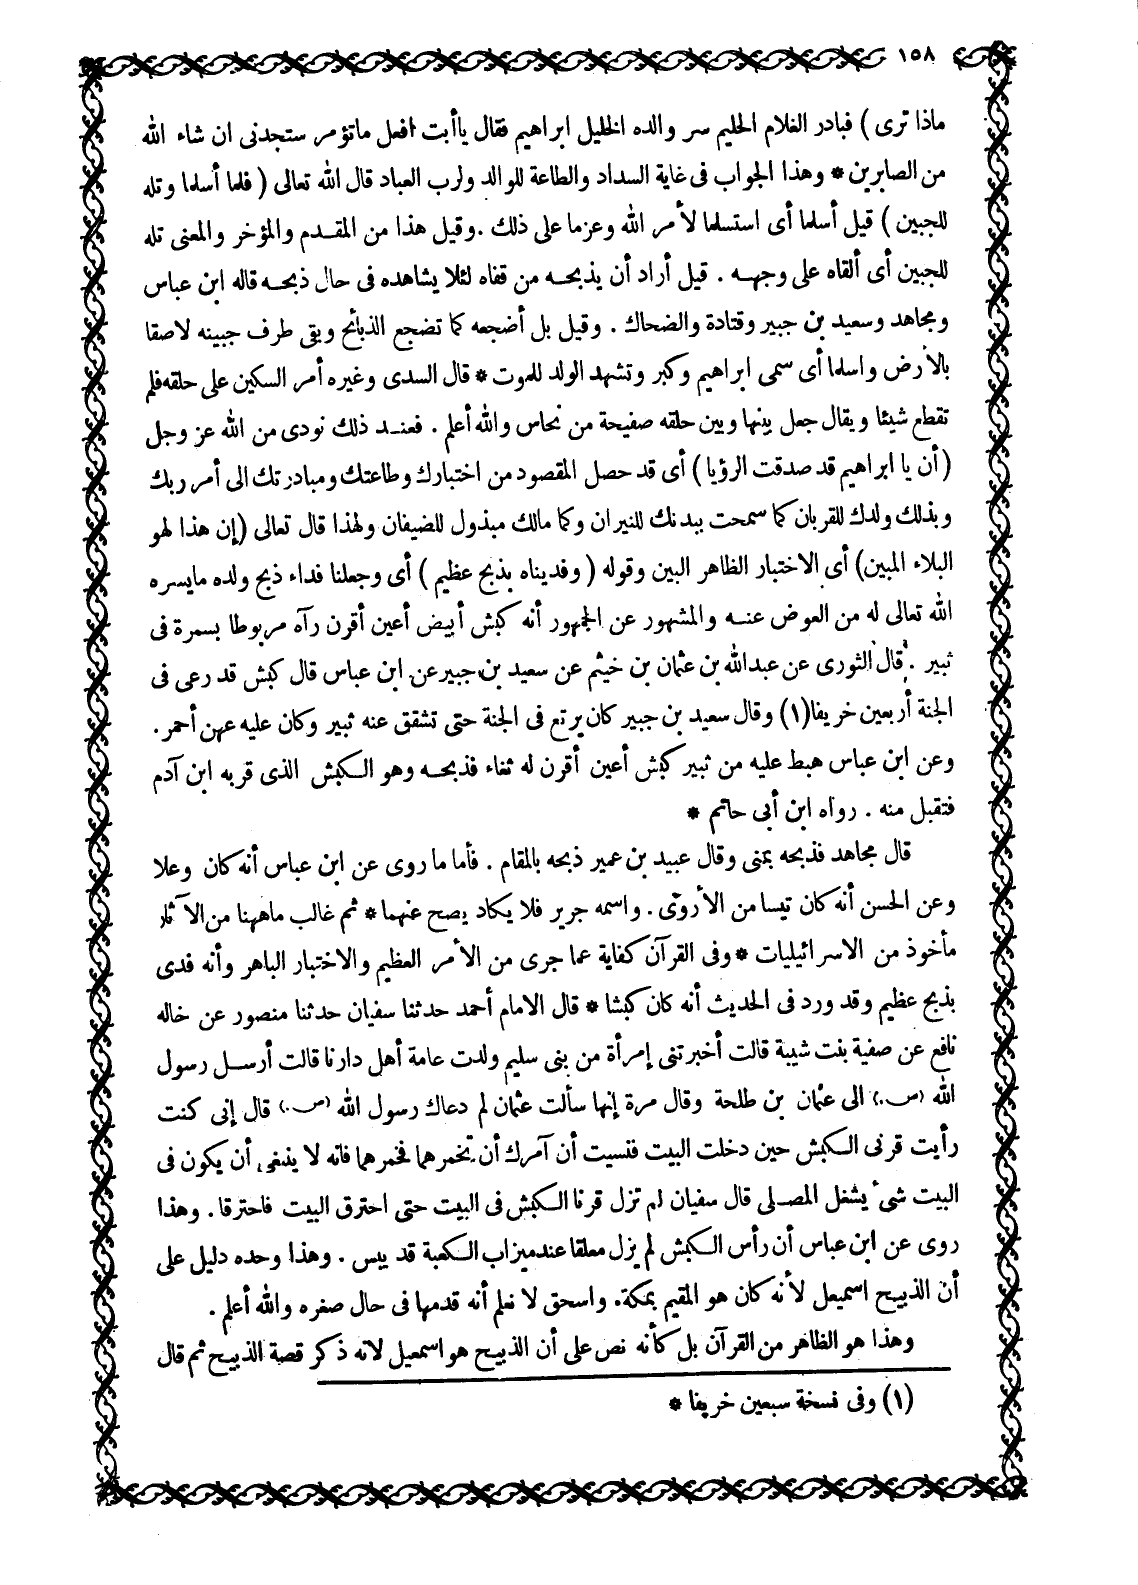 ١٥٨
ماذا ترى ) فبادر الغلام الحليم سر والده الخليل ابراهيم فقال ياأبت افعل ماتؤمر ستجدنى ان شاء الله
من الصابرين * وهذا الجواب فى غاية السداد والطاعة للوالد ولرب العباد قال الله تعالى ( فلما أسلما وتله
للجبين ) قيل أسلما أى استسلما لأمر الله وعزما على ذلك . وقيل هذا من المقدم والمؤخر والمعنى تله
للجبين أى ألقاه على وجهه . قيل أراد أن يذبحه من قفاه لئلا يشاهده فى حال ذبحه قاله ابن عباس
ومجاهد وسعيد بن جبير وقتادة والضحاك . وقيل بل أضجعه كما تضجع الذبائح وبقى طرف جبينه لاصقا
بالأرض واسلما أى سمى ابراهيم وكبر وتشهد الولد للموت * قال السدى وغيره أمر السكين على حلقه فلم
تقطع شيئا ويقال جعل بينها وبين حلقه صفيحة من نحاس والله أعلم . فعند ذلك نودى من الله عز وجل
( أن يا ابراهيم قد صدقت الرؤيا ) أى قد حصل المقصود من اختبارك وطاعتك ومبادرتك الى أمر ربك
وبذلك ولدك للقربان كما سمحت ببدنك للنيران وكما مالك مبذول للضيفان ولهذا قال تعالى ( إن هذا لهو
البلاء المبين) أى الاختبار الظاهر البين وقوله ( وفديناه بذبح عظيم ) أى وجعلنا فداء ذبح ولده مايسره
الله تعالى له من العوض عنه والمشهور عن الجمهور أنه كبش أبيض أعين أقرن رآه مربوطا بسمرة فى
ثبير . قال الثورى عن عبدالله بن عثمان بن خيثم عن سعيد بن جبير عن ابن عباس قال كبش قد رعى فى
الجنة أربعين خريفا(١) وقال سعيد بن جبير كان يرتع فى الجنة حتى تشقق عنه ثبير وكان عليه عهن أحمر .
وعن ابن عباس هبط عليه من ثبير كبش أعين أقرن له ثغاء فذبحه وهو الكبش الذى قربه ابن آدم
فتقبل منه . رواه ابن أبى حاتم *
قال مجاهد فذبحه بمنى وقال عبيد بن عمير ذبحه بالمقام . فأما ما روى عن ابن عباس أنه كان وعلا
وعن الحسن أنه كان تيسا من الأروى . واسمه جرير فلا يكاد يصح عنهما * ثم غالب ماههنا من الآثار
مأخوذ من الاسرائيليات * وفى القرآن كفاية عما جرى من الأمر العظيم والاختبار الباهر وأنه فدى
بذبح عظيم وقد ورد فى الحديث أنه كان كبشا * قال الامام أحمد حدثنا سفيان حدثنا منصور عن خاله
نافع عن صفية بنت شيبة قالت أخبرتنى إمرأة من بنى سليم ولدت عامة أهل دارنا قالت أرسل رسول
الله (ص.) الى عثمان بن طلحة وقال مرة إنها سألت عثمان لم دعاك رسول الله (ص.) قال إنى كنت
رأيت قرنى الكبش حين دخلت البيت فنسيت أن آمرك أن تخمرهما فخمرهما فانه لا ينبغى أن يكون فى
البيت شئ يشغل المصلى قال سفيان لم تزل قرنا الكبش فى البيت حتى احترق البيت فاحترقا . وهذا
روى عن ابن عباس أن رأس الكبش لم يزل معلقا عند ميزاب الكعبة قد يبس . وهذا وحده دليل على
أن الذبيح اسمعيل لأنه كان هو المقيم بمكة. واسحق لا نعلم أنه قدمها فى حال صغره والله أعلم .
وهذا هو الظاهر من القرآن بل كأنه نص على أن الذبيح هو اسمعيل لانه ذكر قصة الذبيح ثم قال
(١) وفى نسخة سبعين خريفا *